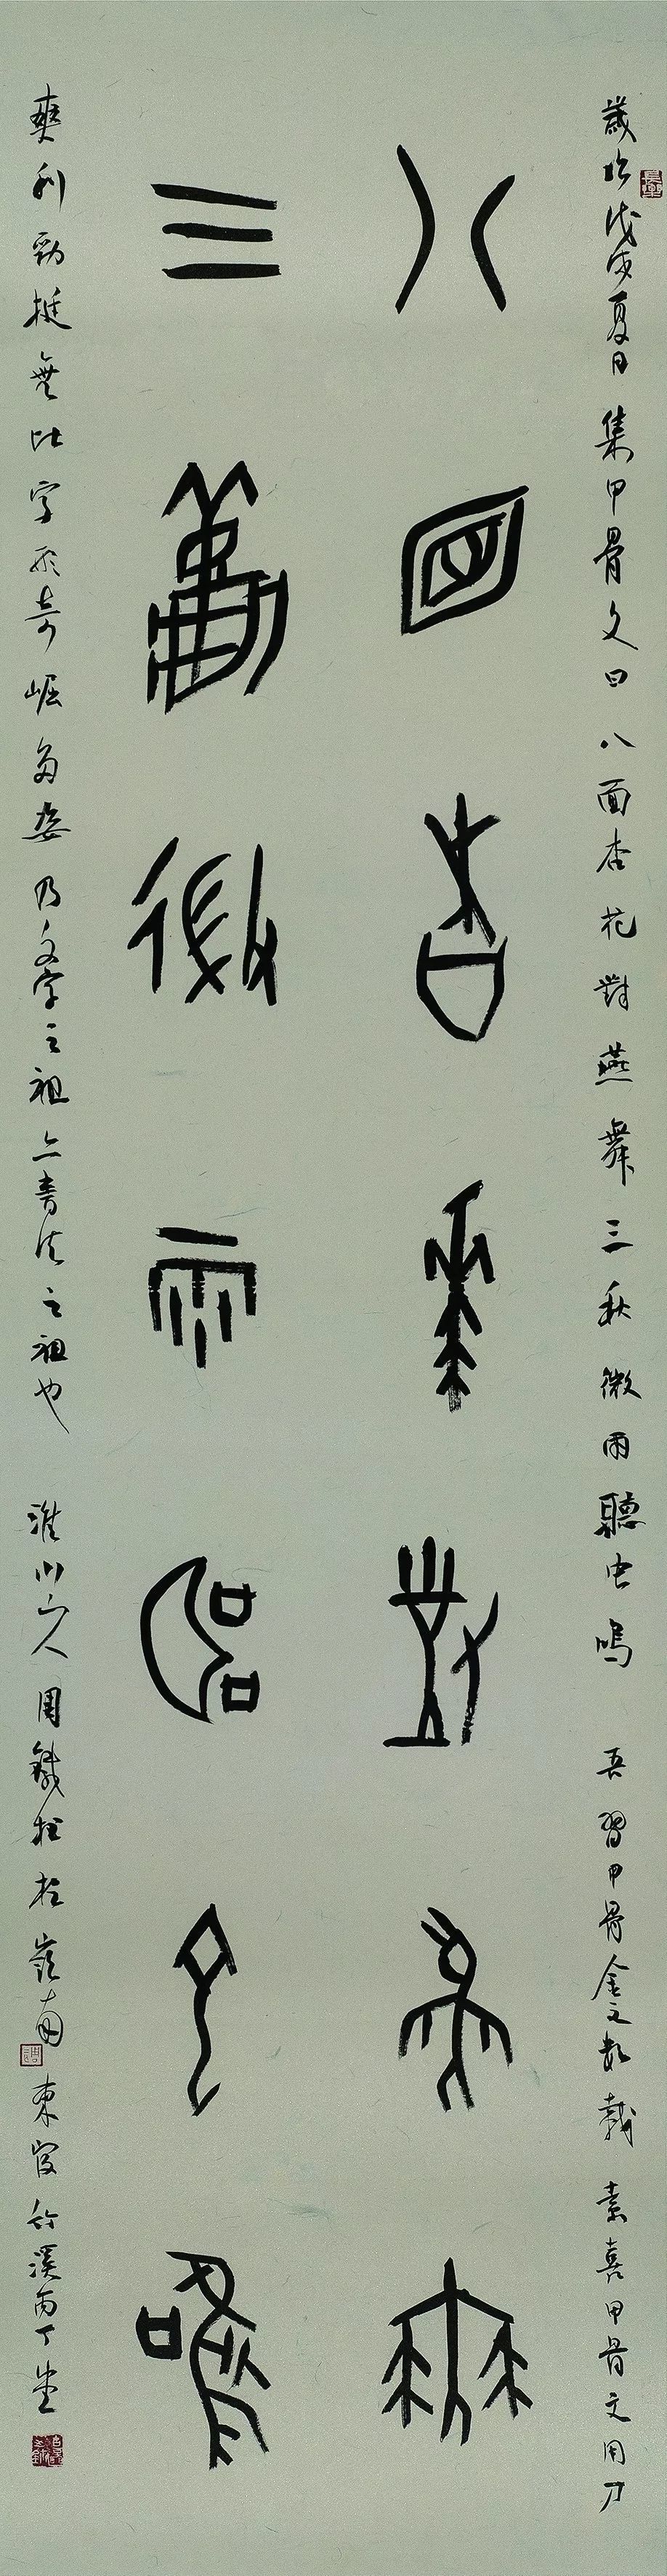 歲於戊戌夏日集甲骨文曰八面杏花對燕舞三秋微雨聽虫鳴 吾習甲骨金文數載素喜甲骨文用刀
八面杏花對燕舞
三秋微雨聽虫鳴
爽利勁挺無比字形奇崛多姿乃文字之祖亦書法之祖也 淮山人周鐵柱於嶺南東官竹溪丙丁堂